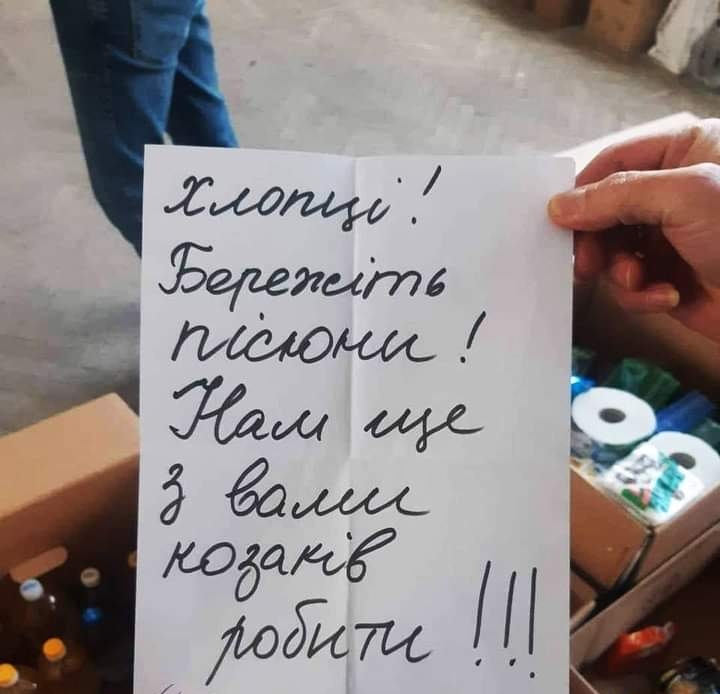 Хлопці!
Бережіть
пісюни!
Нам ще
з вами
козаків
робити!!!